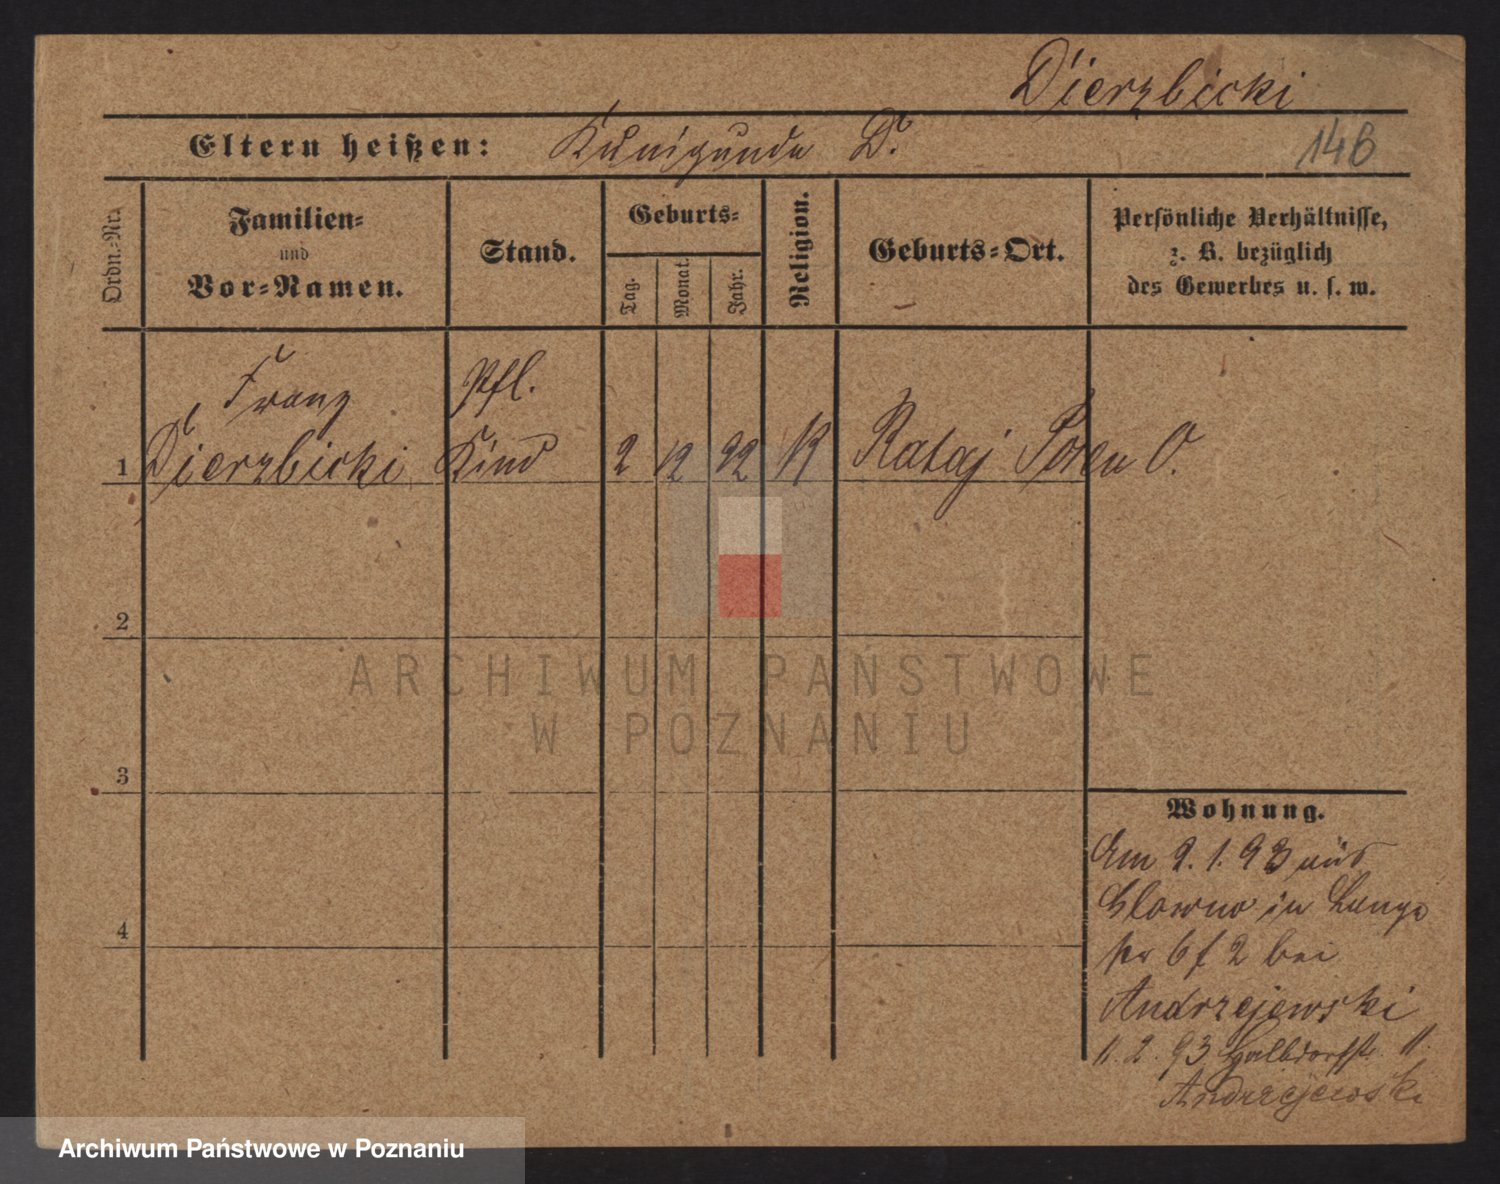 Dierzbicki
Eltern heißen: Kunigunde D.
146
Ordn.-Nr.
Familien-
und
Vor-Namen.
Stand.
Geburts-
Tag.
Monat.
Jahr.
Religion.
Geburts-Ort.
Persönliche Verhältnisse,
z. B. bezüglich
des Gewerbes u. s. w.
Franz Pfl.
1 Dierzbicki Kind 2 12 92 K Rataj Posen O.
2
3
4
ARCHIWUM PAŃSTWOWE
W POZNANIU
Wohnung.
Am 2. 1. 93 aus
Glowno in Lange
str 6 f 2 bei
Andrzejewski
11. 2. 93 Halbdorfstr. 11.
Andrzejewski
Archiwum Państwowe w Poznaniu